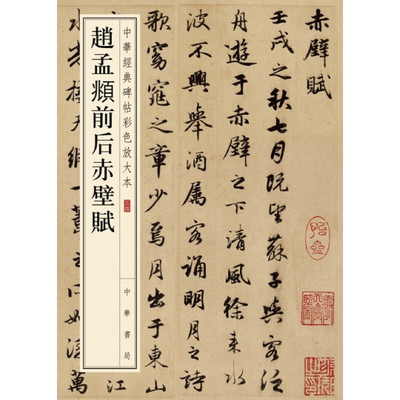 赤壁賦
壬戌之秋七月既望蘇子與客泛
舟遊于赤壁之下清風徐来水
波不興舉酒属客誦明月之詩
歌窈窕之章少焉月出于東山
江
水光接天縱一葦之所如凌萬
中華經典碑帖彩色放大本
趙孟頫前后赤壁賦
中華書局